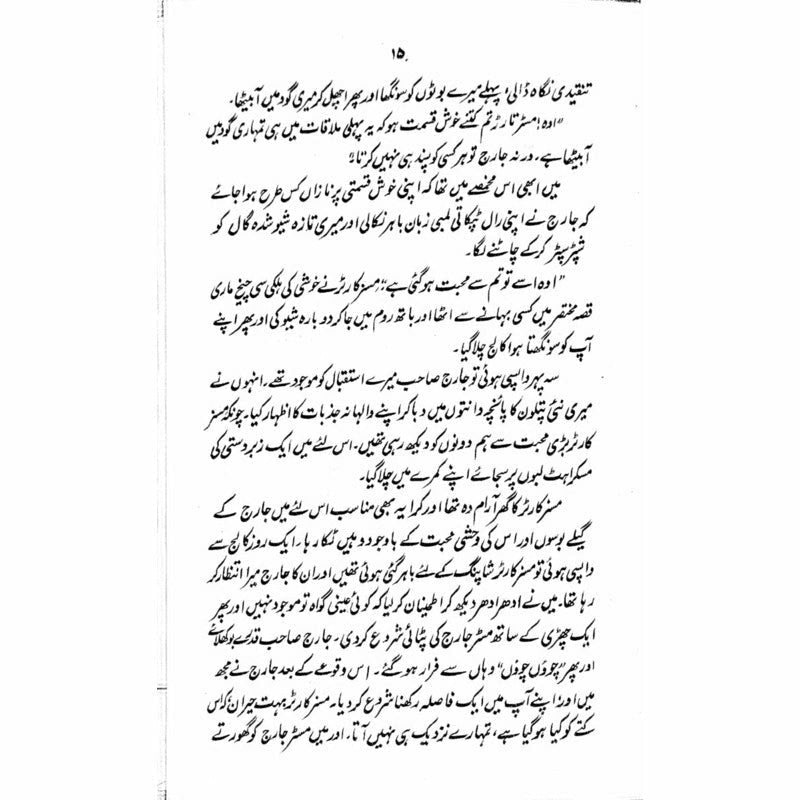 ۱۵
تنقیدی نگاہ ڈالی، پہلے میرے بوٹوں کو سونگھا اور پھر اچھل کر میری گود میں آ بیٹھا۔
"اوہ! مسٹر تارڑ تم کتنے خوش قسمت ہو کہ یہ پہلی ملاقات میں ہی تمہاری گود میں
آ بیٹھا ہے، ورنہ جارج تو ہر کسی کو پسند ہی نہیں کرتا۔"
میں ابھی اس مخمصے میں تھا کہ اپنی خوش قسمتی پر نازاں کس طرح ہوا جائے
کہ جارج نے اپنی رال ٹپکاتی لمبی زبان باہر نکالی اور میری تازہ شیو شدہ گال کو
شپڑ شپڑ کر کے چاٹنے لگا۔
"اوہ اسے تو تم سے محبت ہو گئی ہے"، مسز کارٹر نے خوشی کی ہلکی سی چیخ ماری
قصہ مختصر میں کسی بہانے سے اٹھا اور باتھ روم میں جا کر دوبارہ شیو کی اور پھر اپنے
آپ کو سونگھتا ہوا کالج چلا گیا۔
سہ پہر واپسی ہوئی تو جارج صاحب میرے استقبال کو موجود تھے۔ انہوں نے
میری نئی پتلون کا پائنچہ دانتوں میں دبا کر اپنے والہانہ جذبات کا اظہار کیا۔ چونکہ مسز
کارٹر بڑی محبت سے ہم دونوں کو دیکھ رہی تھیں۔ اس لئے میں ایک زبردستی کی
مسکراہٹ لبوں پر سجائے اپنے کمرے میں چلا گیا۔
مسز کارٹر کا گھر آرام دہ تھا اور کرایہ بھی مناسب اس لئے میں جارج کے
گیلے بوسوں اور اس کی وحشی محبت کے باوجود وہیں ٹکا رہا۔ ایک روز کالج سے
واپسی ہوئی تو مسز کارٹر شاپنگ کے لئے باہر گئی ہوئی تھیں اور ان کا جارج میرا انتظار کر
رہا تھا۔ میں نے ادھر ادھر دیکھ کر اطمینان کر لیا کہ کوئی عینی گواہ تو موجود نہیں اور پھر
ایک چھڑی کے ساتھ مسٹر جارج کی پٹائی شروع کر دی۔ جارج صاحب قدرے بوکھلائے
اور پھر "چوؤں چوؤں" وہاں سے فرار ہو گئے۔ اس وقوعے کے بعد جارج نے مجھ
میں اور اپنے آپ میں ایک فاصلہ رکھنا شروع کر دیا۔ مسز کارٹر بہت حیران کہ اس
کتے کو کیا ہو گیا ہے، تمہارے نزدیک ہی نہیں آتا۔ اور میں مسٹر جارج کو گھورتے